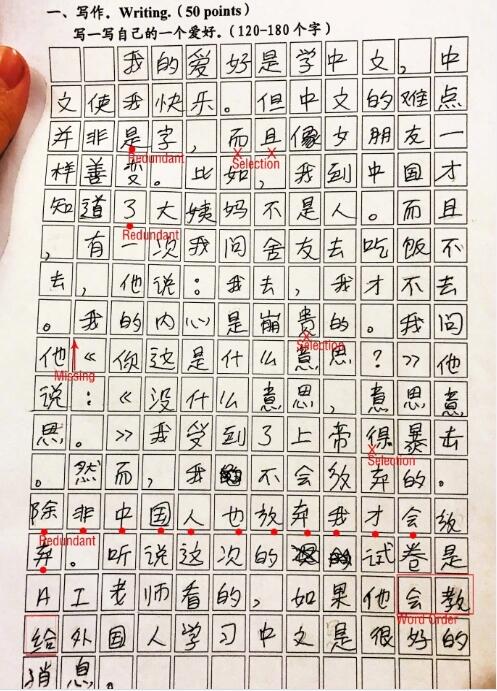 一、写作. Writing.（50 points）
写一写自己的一个爱好.（120-180 个字）
我的爱好是学中文，中
文使我快乐。但中文的难点
并非是字，而且像女朋友一
Redundant Selection
样善变。比如，我到中国才
知道了大姨妈不是人。而且
Redundant
，有一次我问舍友去吃饭不
去，他说：我去，我才不去
。我的内心是崩贵的。我问
Selection
他《你这是什么意思？》他
Missing
说：《没什么意思，意思意
思。》我受到了上帝得暴击
Selection
。然而，我不会放弃的。
除非中国人也放弃我才会放
Redundant
弃。听说这次的试卷是
AI老师看的，如果他会教
Word Order
给外国人学习中文是很好的
消息。